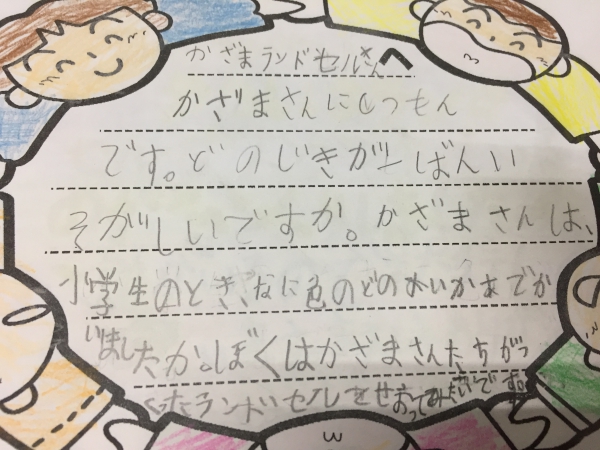 かざまランドセルさんへ
かざまさんにしつもん
です。どのじきが一ばんい
そがしいですか。かざまさんは、
小学生のとき、なに色のどの
いましたか。ぼくはかざまさんたちがつ
ったランドセルをせおってみたいです。